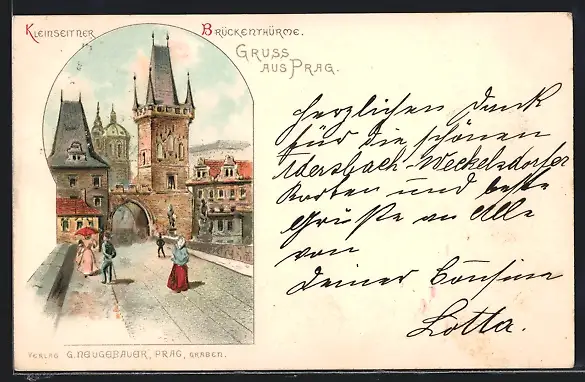 Kleinseitner Brückenthürme.
Gruss
aus Prag.
Herzlichen Dank
für die schönen
Adersbach-Weckelsdorfer
Karten und beste
Grüße an Alle
von
Deiner Cousine
Lotta.
Verlag G. Neugebauer, Prag, Graben.